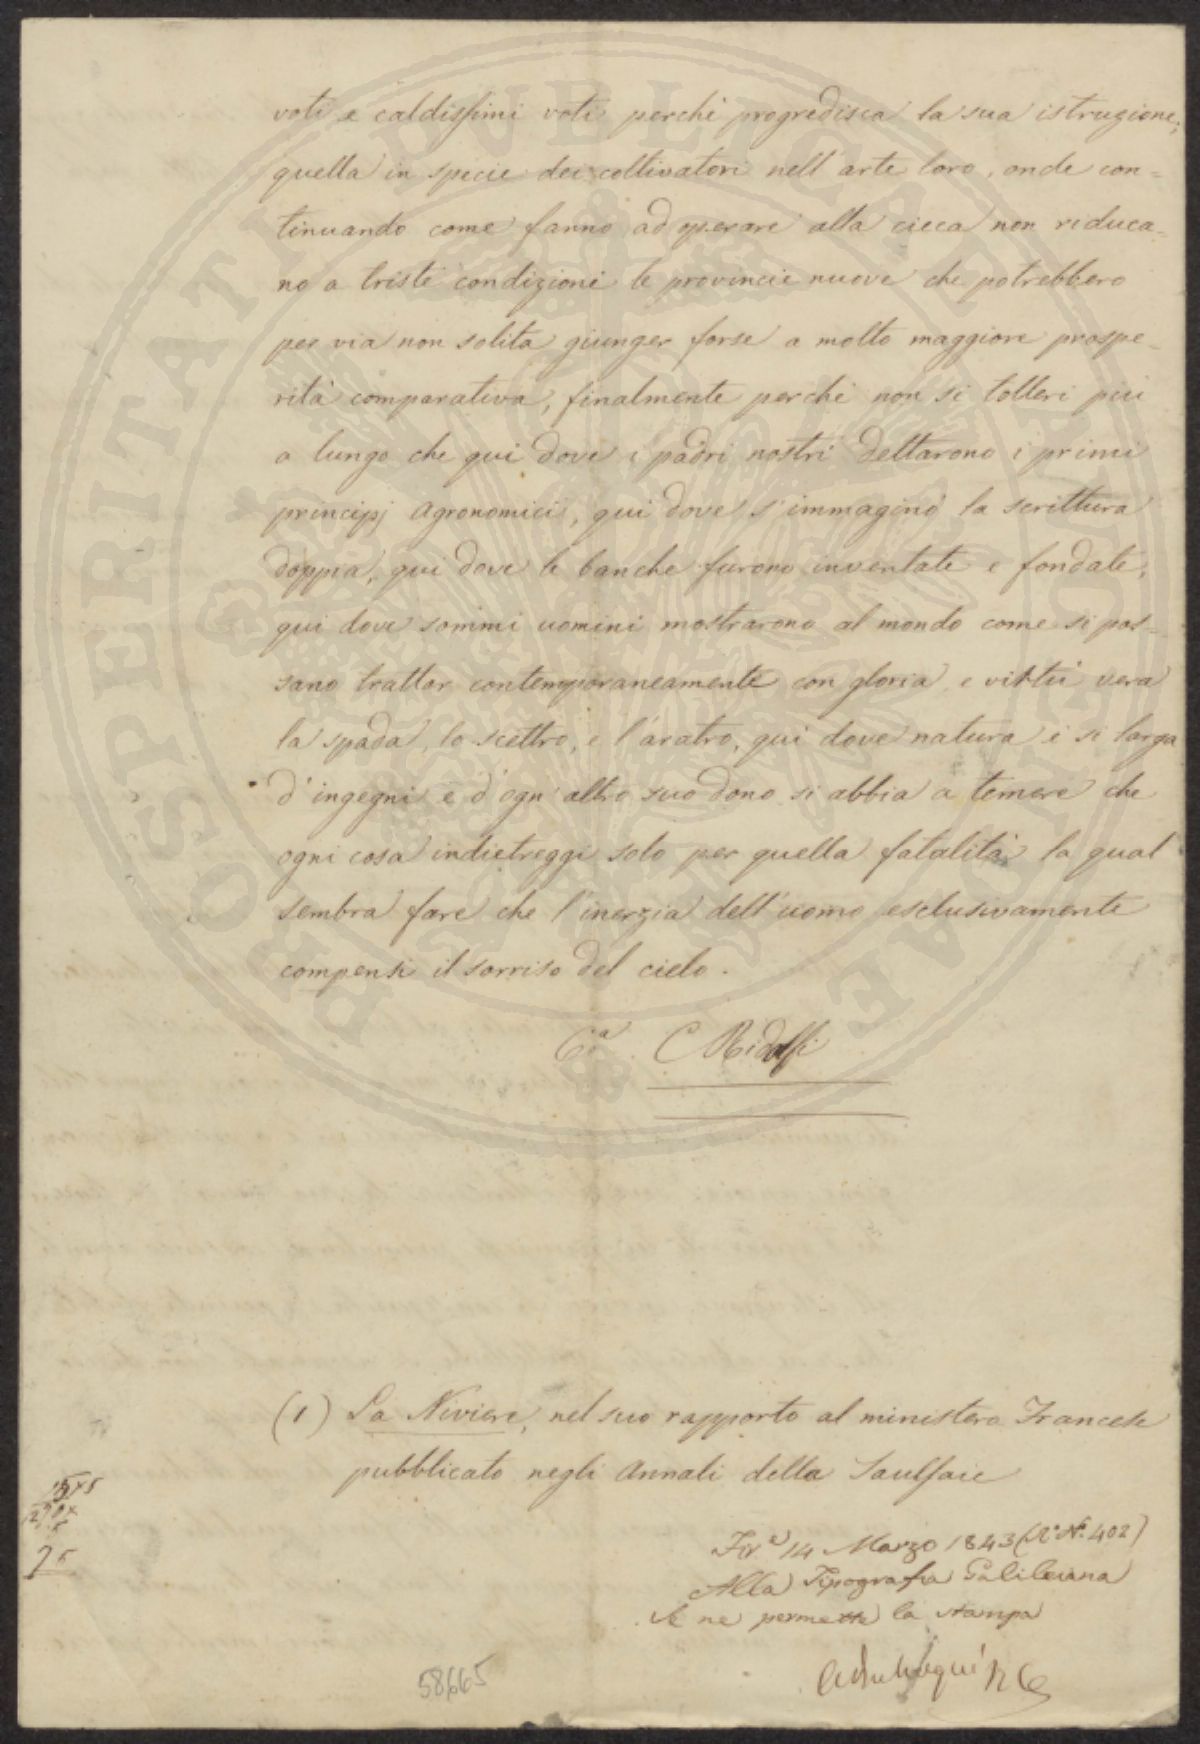 voti e caldissimi voti perchè progredisca la sua istruzione,
quella in specie dei coltivatori nell'arte loro, onde con=
tinuando come fanno ad operare alla cieca non riduca=
no a triste condizioni le provincie nuove che potrebbero
per via non solita giunger forse a molto maggiore prospe=
rità comparativa, finalmente perchè non si tolleri più
a lungo che qui dove i padri nostri dettarono i primi
principj agronomici, qui dove s'immaginò la scrittura
doppia, qui dove le banche furono inventate e fondate,
qui dove sommi uomini mostrarono al mondo come si pos=
sano trattar contemporaneamente con gloria, e virtù vera
la spada, lo scettro, e l'aratro, qui dove natura è si larga
d'ingegni e d'ogn'altro suo dono si abbia a temere che
ogni cosa indietreggi solo per quella fatalità la qual
sembra fare che l'inerzia dell'uomo esclusivamente
compensi il sorriso del cielo.
C Ridolfi
(1) La Niviere, nel suo rapporto al ministero Francese
pubblicato negli Annali della Saulsaie
14 Marzo 1843 (N. 402)
Alla Tipografia Galileiana
Se ne permette la stampa
58665
PROSPERITATI PUBLICAE AUGENDAE